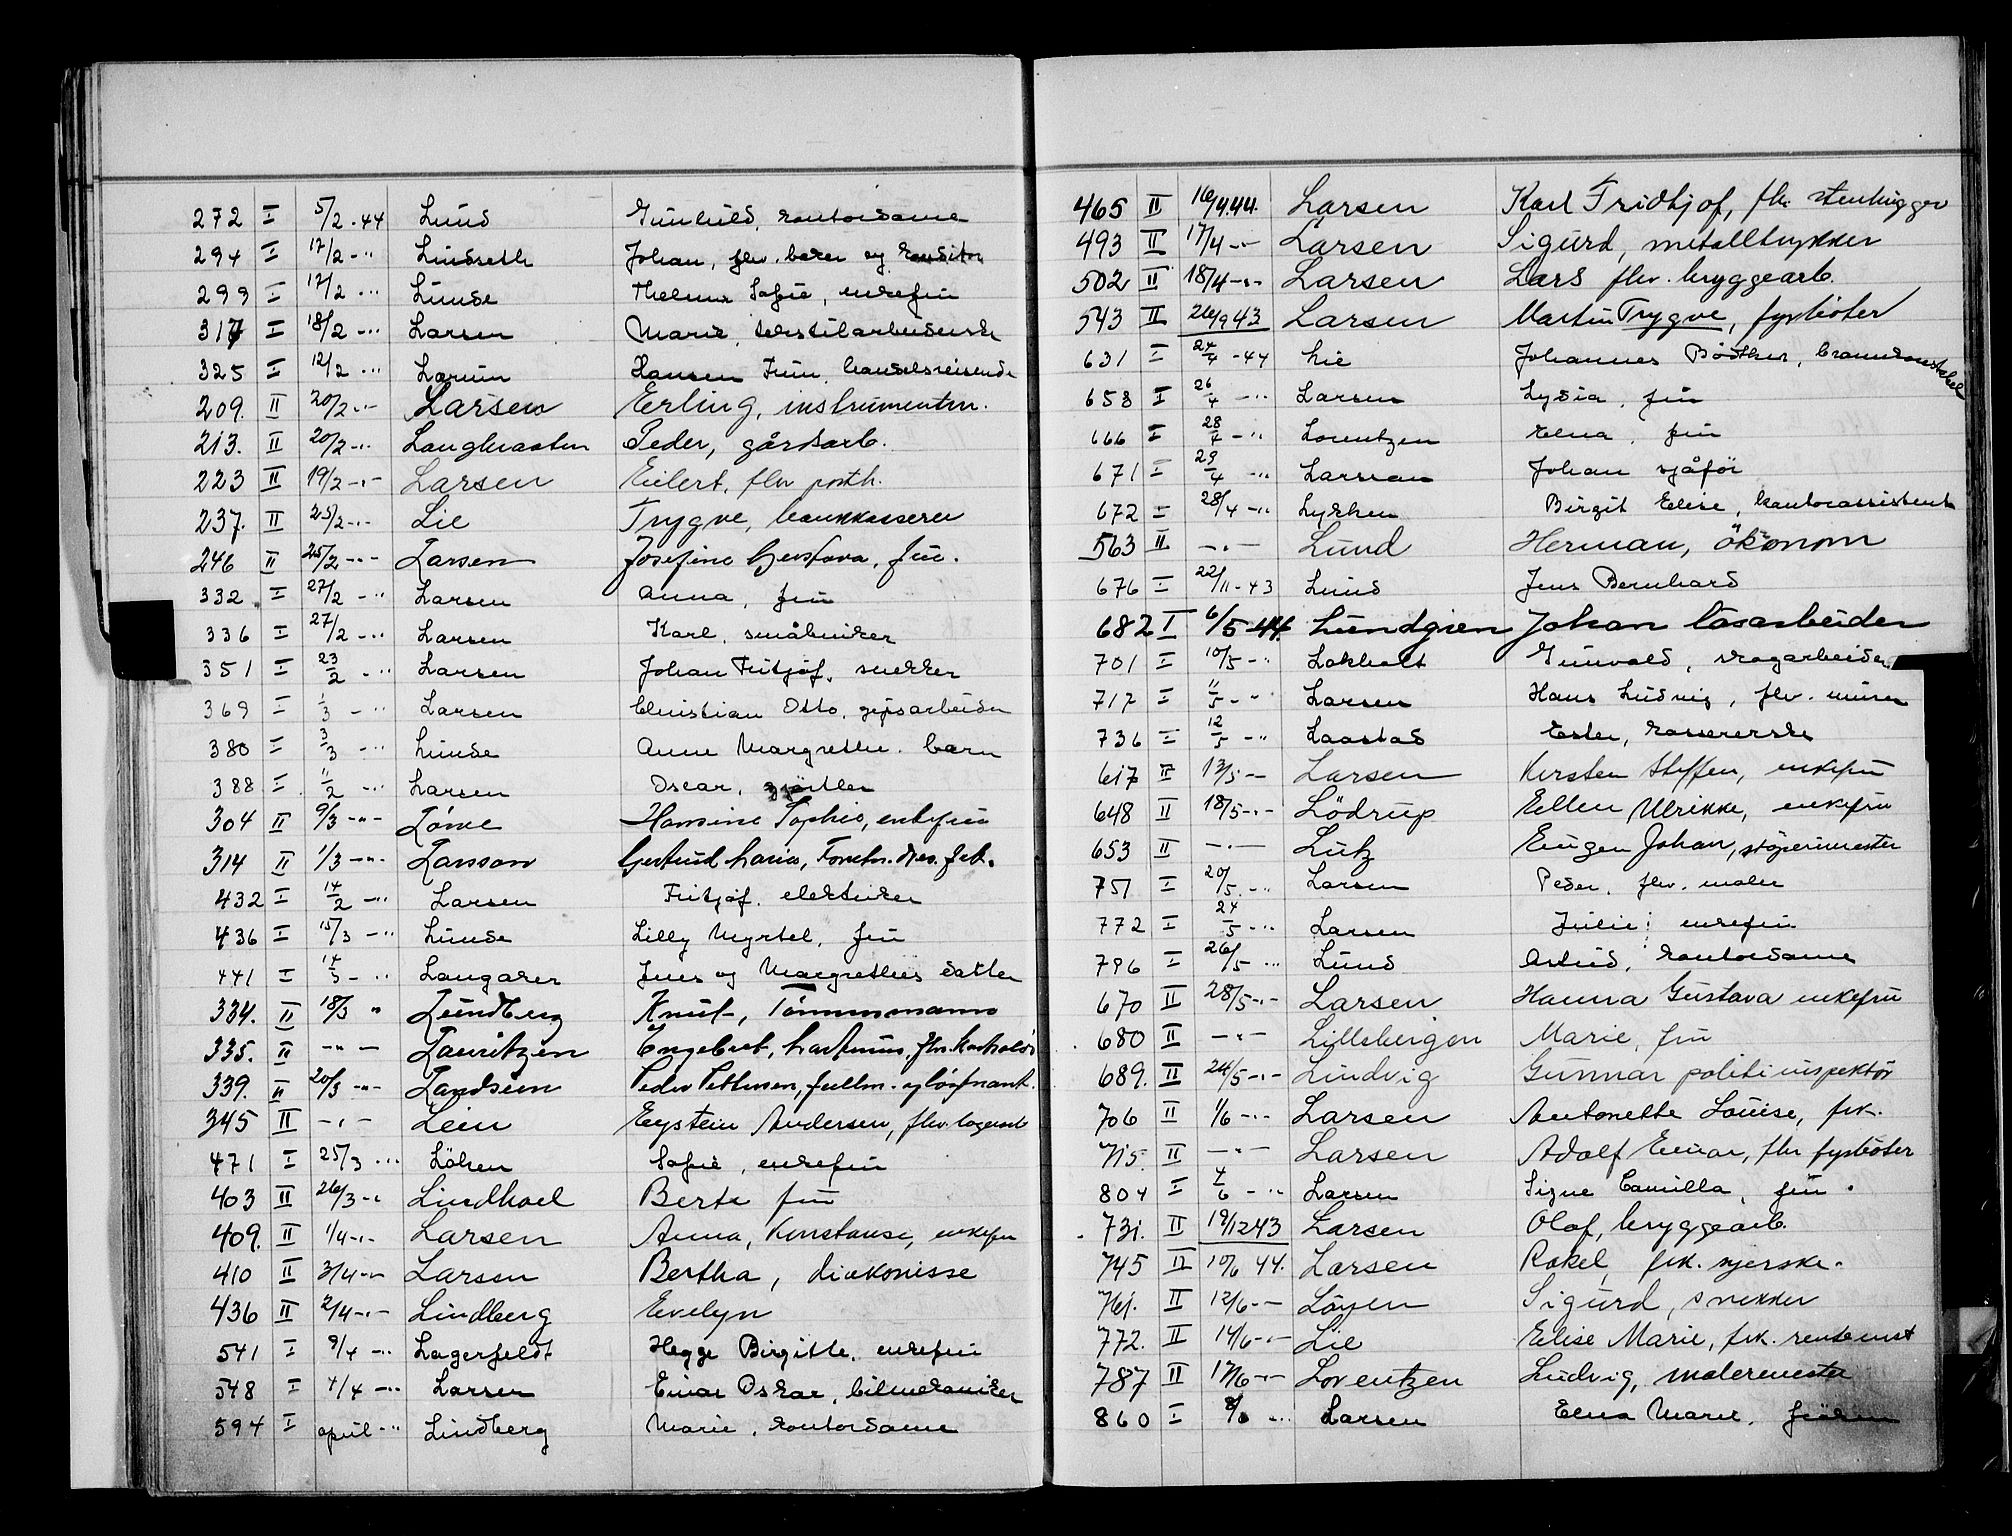 272 I 5/2-44 Lund Gunhild, kontordame
294 I 17/2 -"- Lindseth Johan, flv. baker og konditor
299 I 17/2 -"- Lunde Thelma Sofie, enkefru
317 I 18/2 -"- Larsen Marie, tekstilarbeiderske
325 I 12/2 -"- Lørum Hansen Finn, handelsreisende
209. II 20/2 -"- Larsen Erling, instrumentm.
213. II 20/2 -"- Langbraaten Peder, gårdsarb.
223 II 19/2 -"- Larsen Eilert, flv postb.
237. II 25/2 -"- Lie Trygve, bankkasserer
246 II 25/2 -"- Larsen Josefine Gustava, fru.
332 I 27/2 -"- Larsen Anna, fru
336 I 27/2 -"- Larsen Karl, småbruker
351 I 23/2 -"- Larsen Johan Fritjof, snekker
369 I 1/3 -"- Larsen Christian Otto, gipsarbeider
380 I 3/3 -"- Lunde Anne Margrethe, barn
388 I 11/2 -"- Larsen Oscar, gjørtler
304 II 9/3 -"- Hansine Sophie, enkefru
314 II 1/3 -"- Larsson Gertrud Maria,
432 I 14/2 -"- Larsen Fritjof, elektriker
436 I 15/3 -"- Lunde Lilly Myrtel, fru
441 I 14/3 -"- Langaker Jens og Margrethes datter
334. II 18/3 " Lundberg Knut, Tømmermann
335. II -"- Lauritzen Engebret,
339. II 20/3 -"- Peder Pettersen,
345 II -"- Lein Eystein Andersen, flv. lagerarb
471 I 25/3 -"- Løken Sofie, enkefru
403 II 26/3 -"- Lindhoel Berte fru
409. II 1/4 -"- Larsen Anna, Konstanse, enkefru
410 II 3/4 -"- Larsen Bertha, diakonisse
436 II 2/4 -"- Lindberg Evelyn
541 I 9/4 -"- Lagerfeldt Hegge Birgitte, enkefru
548 I 4/4 -"- Larsen Einar Oskar, bilmekaniker
594 I april -"- Lindberg Marie, kontordame
465 II 16/4.44. Larsen Karl Fridtjof, flv. stenhugger
493 II 17/4 -"- Larsen Sigurd, metalltrykker
502 II 18/4 -"- Larsen Lars flv. bryggearb.
543 II 26/9 43 Larsen Martin Trygve, fyrbøter
631 I 24/4 -44 Lie Johannes Bøther, brannkonstabel
658 I 26/4 -"- Larsen Lydia, fru
666 I 28/4 -"- Lorentzen Elna, fru
671 I 29/4 -"- Larssen Johan sjåfør
672 I 28/4 -"- Lykken Birgit Elise, kontorassistent
563 II -"- Lund Herman, økonom
676 I 22/11-43 Lund Jens Bernhard
682 I 6/5 44. Lundgren Johan løsarbeider
701 I 10/5 -"- Lokholt Gunvald, skogarbeider
717 I 11/5 -"- Larsen Hans Ludvig, flv. murer
736 I 12/5 -"- Laastad Ester, kassererske
617 II 13/5 -"- Larsen Kirsten Steffen, enkefru
648 II 18/5 -"- Lødrup Ellen Ulrikke, enkefru
653 II -"- Lutz Eugen Johan, støperimester
751 I 20/5 -"- Larsen Peder, flv. maler
772 I 24/5 -"- Larsen Julie, enkefru
796 I 26/5 -"- Lund Astrid, kontordame
670 II 28/5 -"- Larsen Hanna Gustava enkefru
680 II -"- Lillebergen Marie, fru
689. II 24/5 -"- Lindvig Gunnar politiinspektør
706 II 1/6 -"- Larsen Antonette Louise, frk.
715. II -"- Larsen Adolf Einar, flv fyrbøter
804 I 4/6 -"- Larsen Signe Camilla, fru.
731. II 19/12 43 Larsen Olaf, bryggearb.
745 II 10/6 44. Larsen Rakel, frk. syerske.
761. II 12/6 -"- Løyen Sigurd, snekker
772. II 14/6 -"- Lie Elise Marie, frk.
787 II 17/6 -"- Lorentzen Ludvig, malermester
860 I 8/6 -"- Larsen Elna Marie, frøken